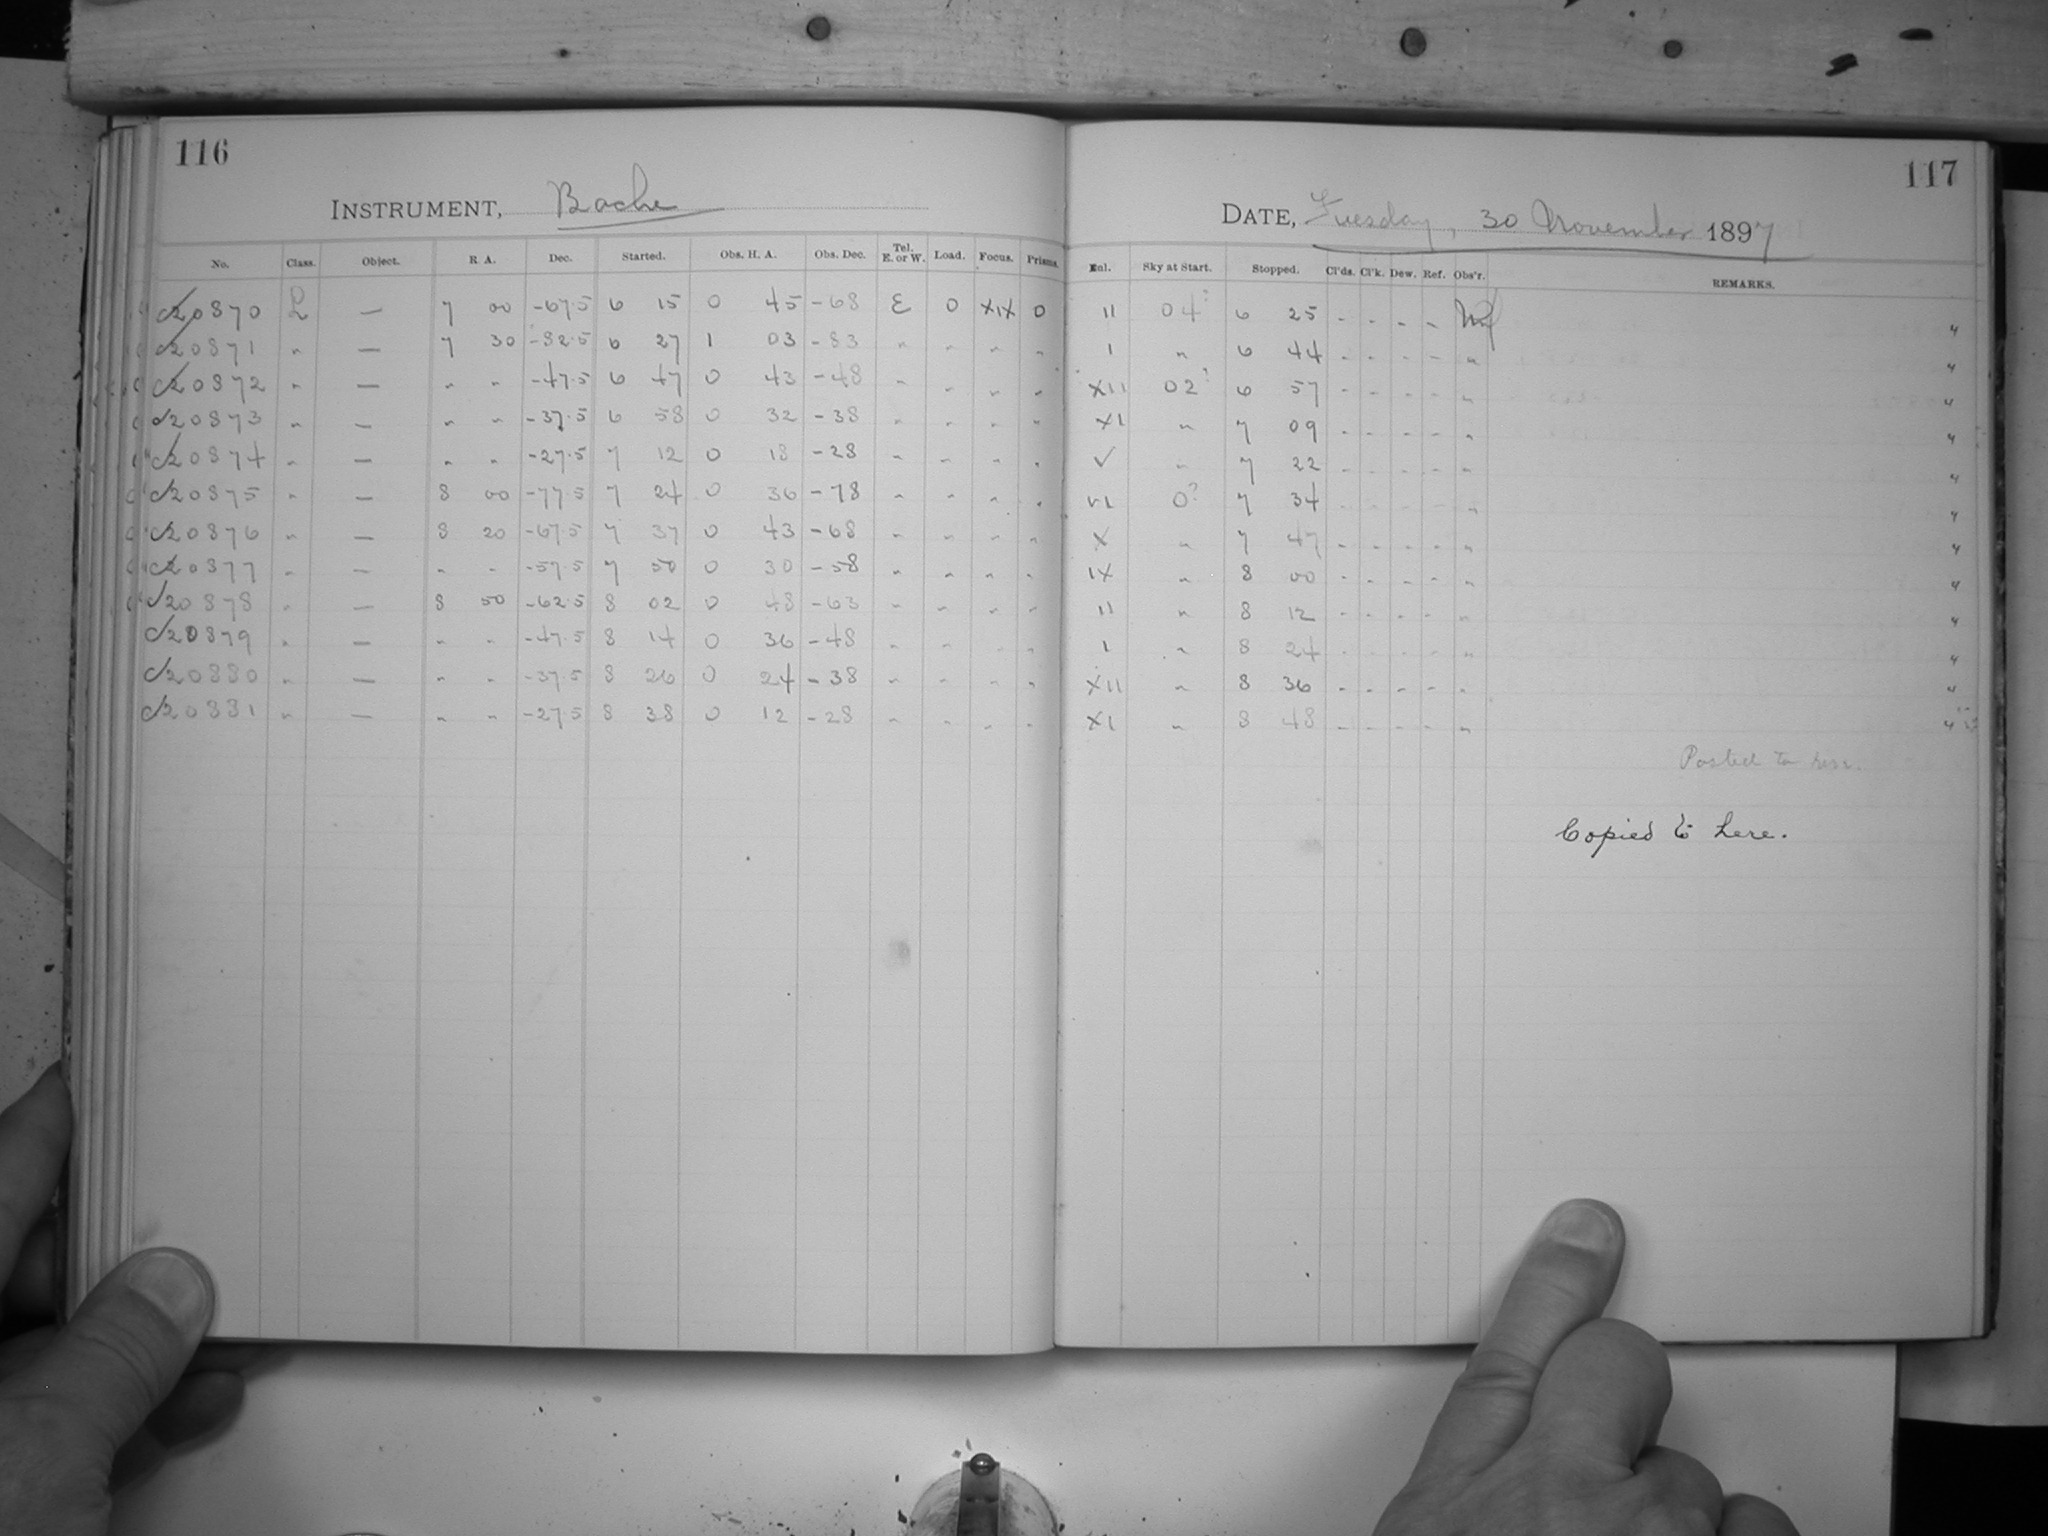 116
INSTRUMENT, Bache
No. Class. Object. R. A. Dec. Started. Obs. H. A. Obs. Dec. Tel. E. or W. Load. Focus. Prisms.
20870 L — 7 00 -67.5 6 15 0 45 -68 E 0 XIX 0
20871 " — 7 30 -82.5 6 27 1 03 -83 " " " "
20872 " — " " -47.5 6 47 0 43 -48 " " " "
20873 " — " " -37.5 6 58 0 32 -38 " " " "
20874 " — " " -27.5 7 12 0 18 -28 " " " "
20875 " — 8 00 -77.5 7 24 0 36 -78 " " " "
20876 " — 8 20 -67.5 7 37 0 43 -68 " " " "
20877 " — " " -57.5 7 50 0 30 -58 " " " "
20878 " — 8 50 -62.5 8 02 0 48 -63 " " " "
20879 " — " " -47.5 8 14 0 36 -48 " " " "
20880 " — " " -37.5 8 26 0 24 -38 " " " "
20881 " — " " -27.5 8 38 0 12 -28 " " " "
117
DATE, Tuesday, 30 November 1897
Enl. Sky at Start. Stopped. Cl'ds. Cl'k. Dew. Ref. Obs'r. REMARKS.
II 04? 6 25 - - - - 4
I " 6 44 - - - - " 4
XII 02? 6 57 - - - - " 4
XI " 7 09 - - - - " 4
V " 7 22 - - - - " 4
VI 0? 7 34 - - - - " 4
X " 7 47 - - - - " 4
IX " 8 00 - - - - " 4
II " 8 12 - - - - " 4
I " 8 24 - - - - " 4
XII " 8 36 - - - - " 4
XI " 8 48 - - - - " 4
Posted to here.
Copied to here.